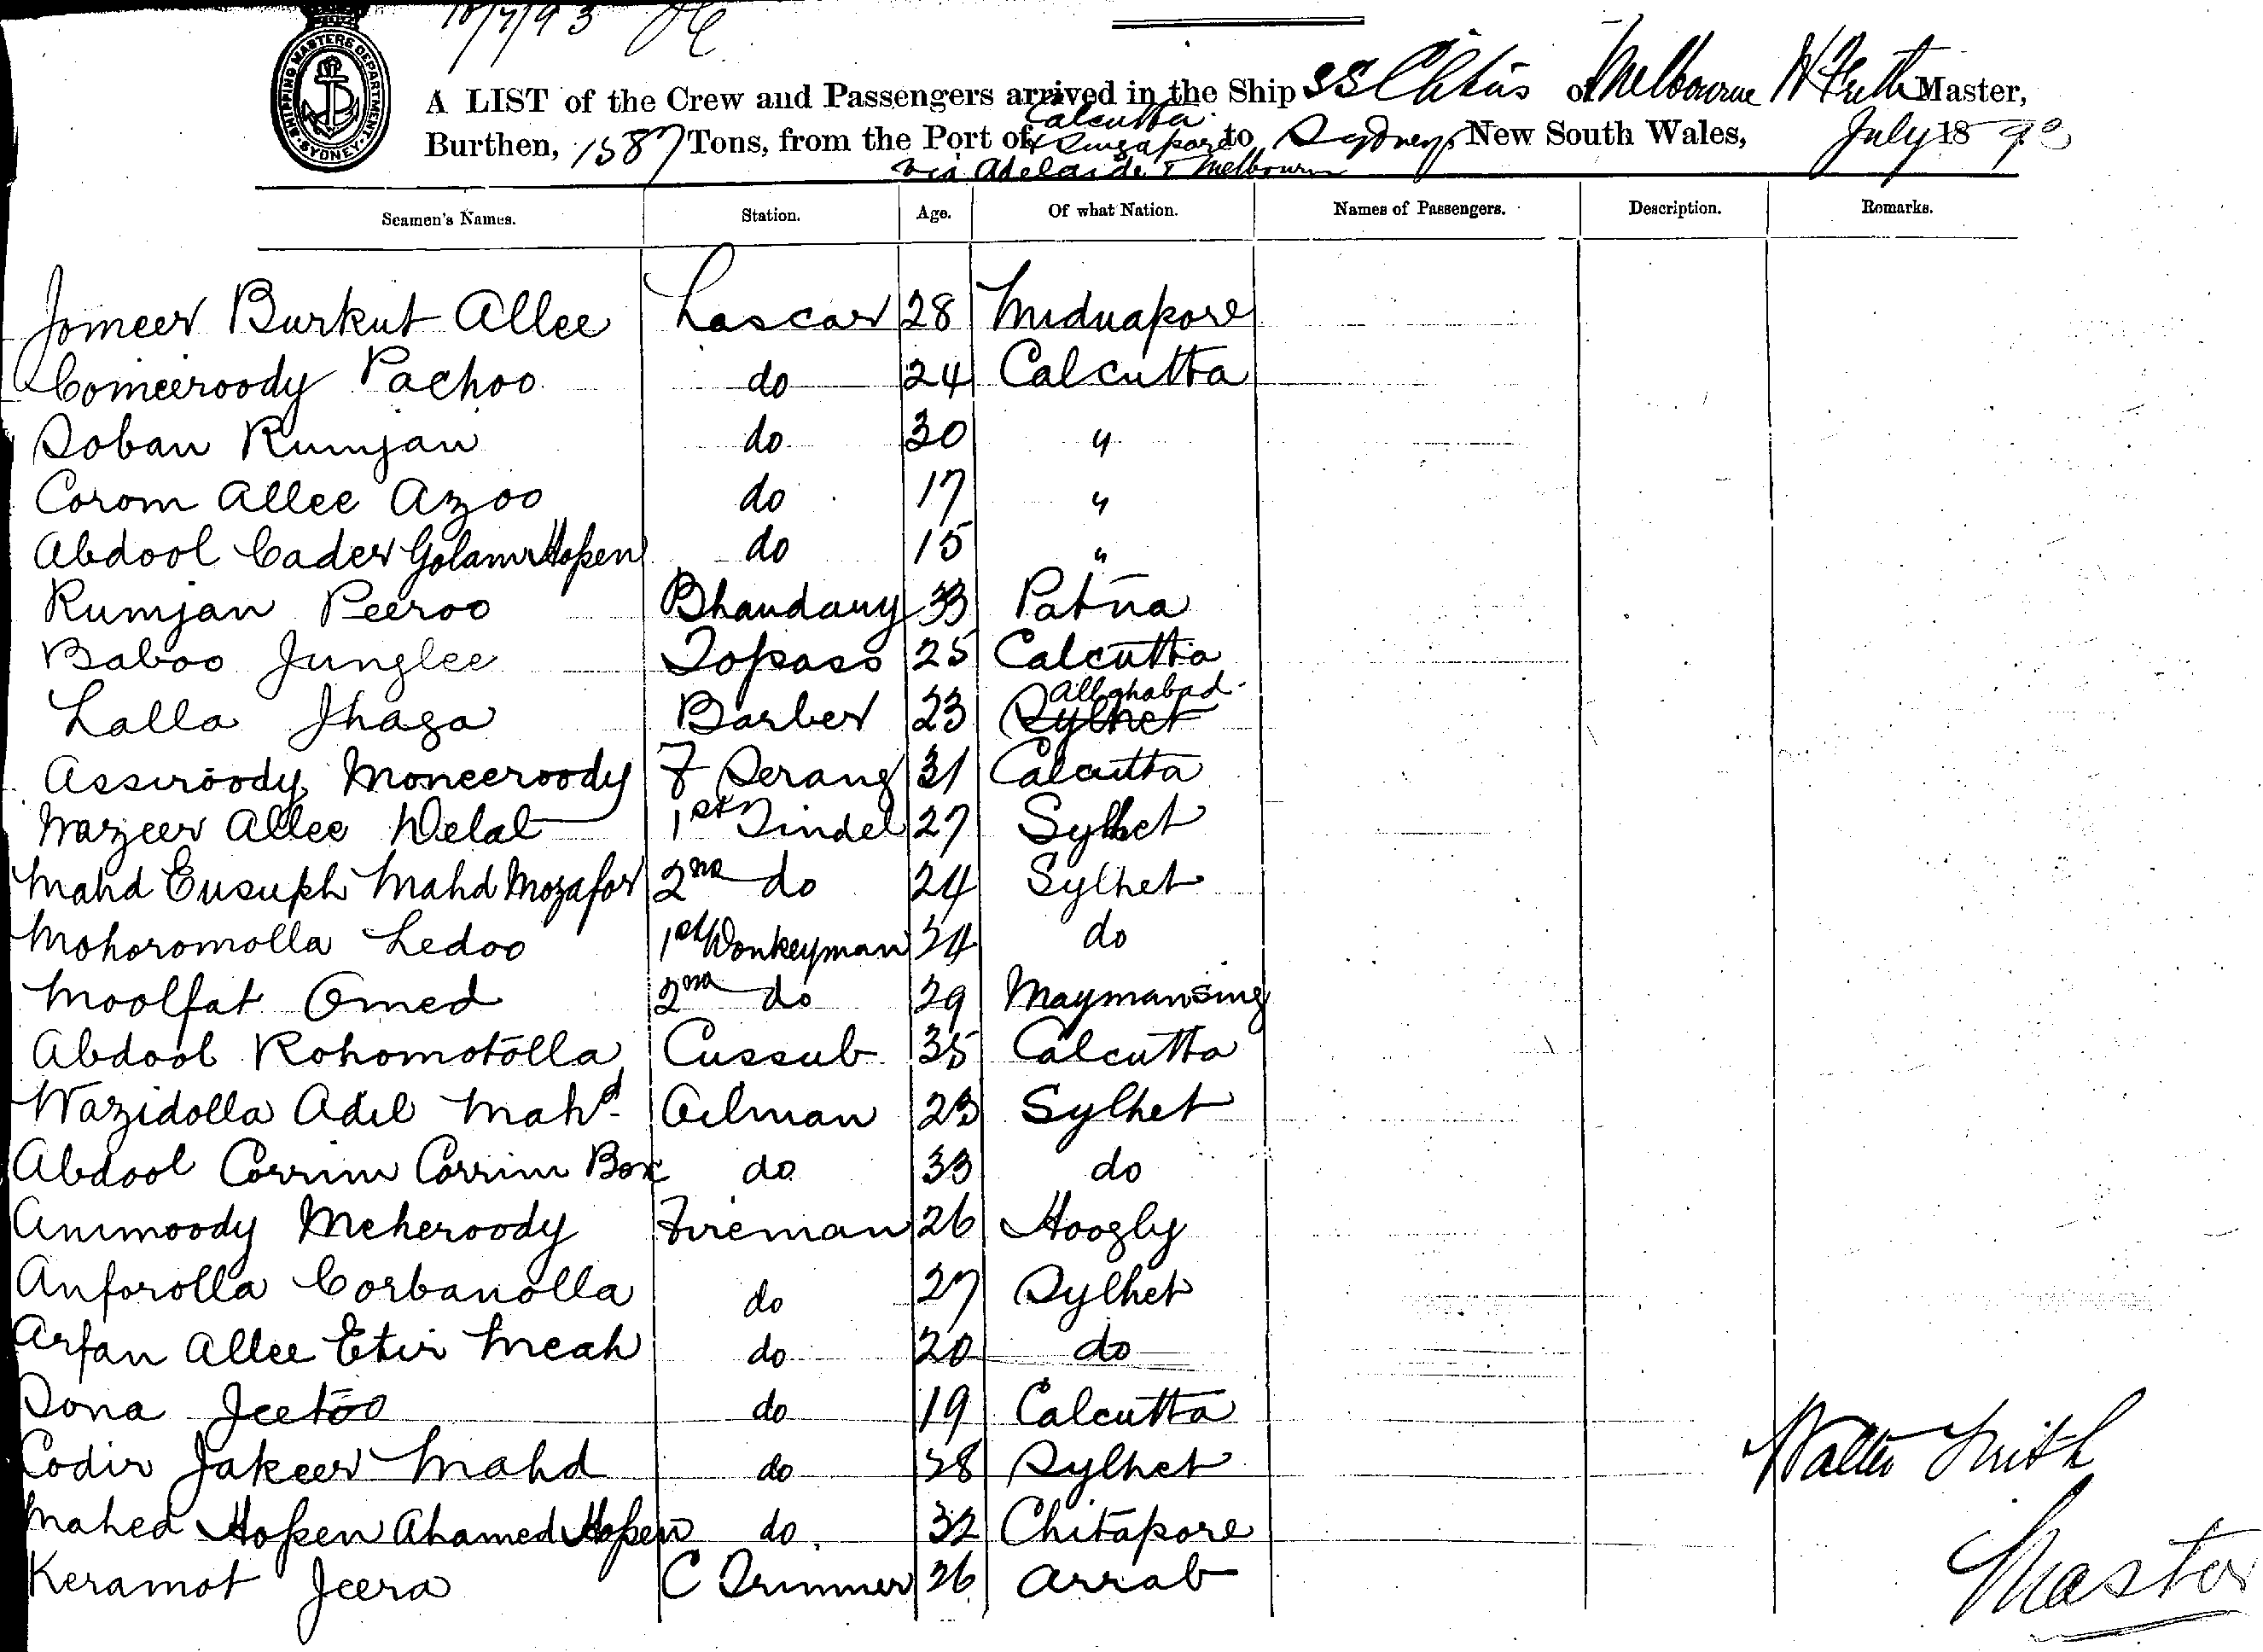 18/7/93
SHIPPING MASTERS DEPARTMENT SYDNEY
A LIST of the Crew and Passengers arrived in the Ship SS of Melbourne Master,
Calcutta
Burthen, 1587 Tons, from the Port of & Singapore to Sydney, New South Wales, July 1893
via Adelaide & Melbourne
Seamen's Names. Station. Age. Of what Nation. Names of Passengers. Description. Remarks.
Jomeer Burkut Allee Lascar 28 Midnapore
Comeeroody Pachoo do 24 Calcutta
Soban Rumjan do 30 "
Corom Allee Azoo do 17 "
Abdool Cader Golam Hossen do 15 "
Rumjan Peeroo Bhandary 33 Patna
Baboo Junglee Topass 25 Calcutta
Allaghabad
Lalla Jhaga Barber 23 Sylhet
Assiroody Moneeroody F Serang 31 Calcutta
Wazeer Allee Delal 1st Tindel 27 Sylhet
Mahd Eusuph Mahd Mozafor 2nd do 24 Sylhet
Mohoromolla Ledoo 1st Donkeyman 34 do
Moolfat Omed 2nd do 29 Maymansing
Abdool Rohomotolla Cussub 35 Calcutta
Wazidolla Adil Mahd Oilman 23 Sylhet
Abdool Corrim Corrim Box do 33 do
Animoody Meheroody Fireman 26 Hoogly
Anforolla Corbanolla do 27 Sylhet
Arfan Allee Etir Meah do 20 do
Sona Jeetoo do 19 Calcutta
Codir Jakeer Mahd do 38 Sylhet
Mahed Hossen Ahamed Hossen do 32 Chitapore
Keramot Jeera C Trimmer 26 Arrab
Walter Smith
Master